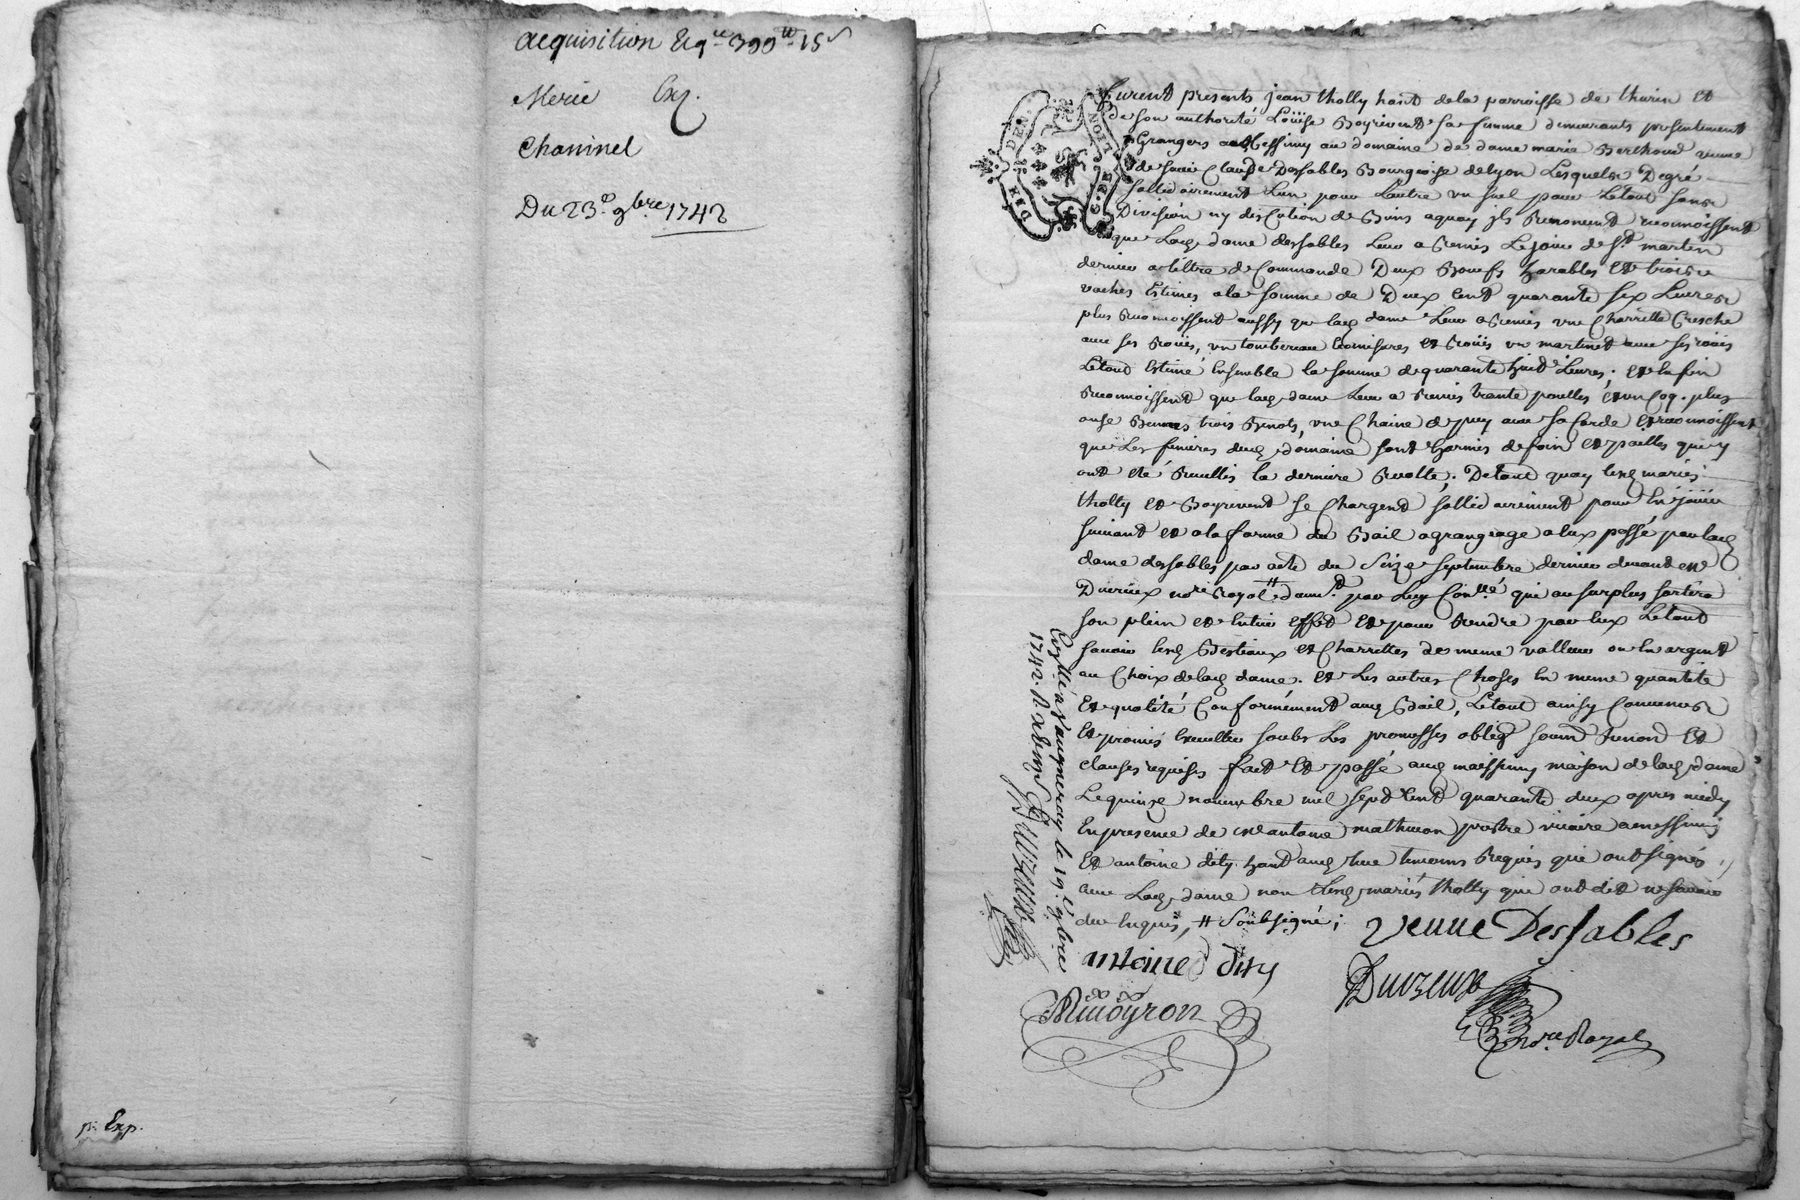 acquisition 390tt 15s
Merie Exp.
Chaninel
Du 23e 9bre 1742
pr Exp.
GEN. DE LION
DEN
Furent presents jean tholly hant de la parroisse de thurin et
de son authorité Loüise Boyrivent sa femme demeurants presentement
Grangers a Messimy au domaine de dame marie Berthoud veuve
de sieur Claude Dessables Bourgeoise de Lyon Lesquels De gré
sollidairement L'un pour L'autre un seul pour Le tout sans
Division ny discution de Biens a quoy ils Renoncent reconnoissent
que Lad dame dessables Leur a Remis Le jour de st martin
dernier a tiltre de Commande Deux Boeufs harables Et trois
vaches Estimés a la somme de Deux Cent quarante six Livres
plus Reconnoissent aussy que lad dame Leur a Remis une Charrette
avec ses Roües, un tombereau et Roües un martinet avec ses roües
Le tout Estimé Ensemble la somme de quarante huit Livres; et En fin
Reconnoissent que lad dame Leur a Remis trante poulles et un Coq. plus
onse Bennes trois Benots, une Chaine de puy avec sa Corde et reconnoissent
que Les feniéres dud domaine sont Garnies de foin et pailles qui y
ont eté Receuillis la derniere Recolte; De tout quoy lesd mariés
tholly et Boyrivent se Chargent sollidairement pour En joüir
suivant et a la forme du Bail a grangeage a Eux passé par lad
dame dessables par acte du Seize septembre dernier devant me
Duvizeux nore Royal # par Luy Conllé qui au surplus sortira
son plein et Entier effet Et pour Rendre par Eux Le tout
savoir lesd Bestiaux et Charrettes de meme valleur ou En argent
au Choix de lad dame. et Les autres Choses En meme quantité
Et qualité Conformément aud Bail, Le tout ainsy Convenus
Et promis Executer soubs Les promesses oblig soum Renon Et
clauses requises fait et passé aud maissimy maison de lad dame
Le quinze novembre mil sept Cent quarante deux apres midy
En presence de mre antoine mathevon prestre vicaire a messimy
Et antoine dity hant aud Lieu temoins Requis qui ont signés
avec Lad dame non Lesd mariés tholly qui ont dit ne savoir
de ce Enquis, # soubsigné;
Veuve Dessables
antoine dity
Duvizeux
Nre Royal
Conllé a Vaugneray le 19e 9bre
1742. R
Duvizeux